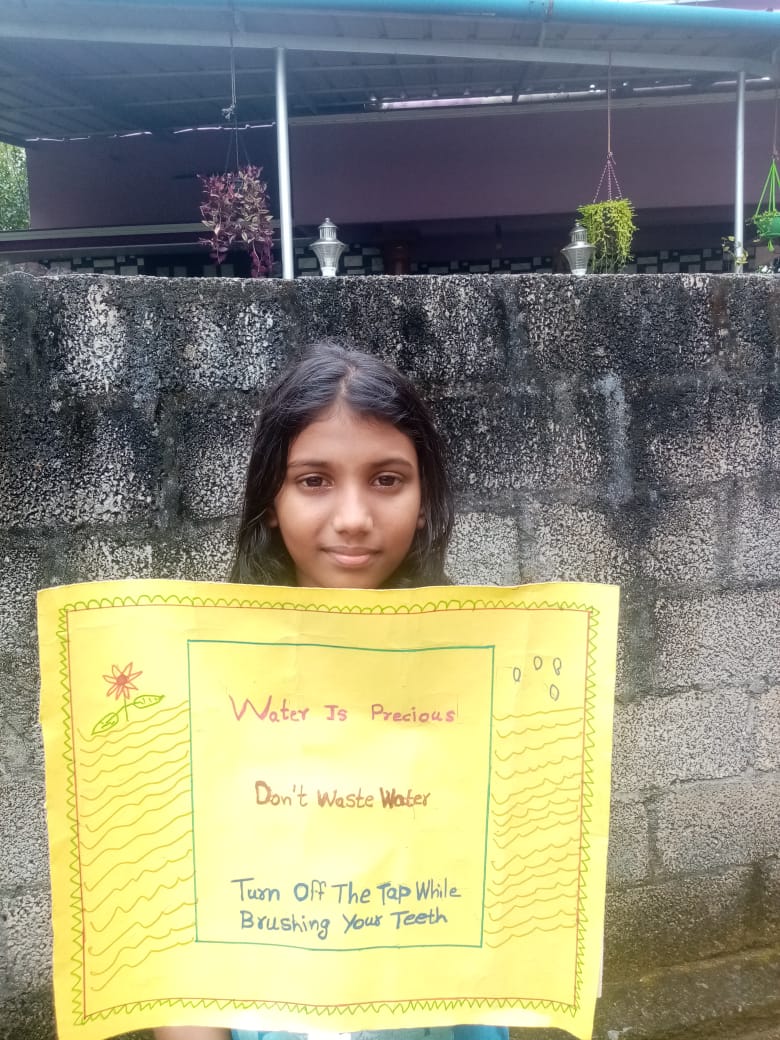 Water Is Precious
Don't Waste Water
Turn Off The Tap While
Brushing Your Teeth